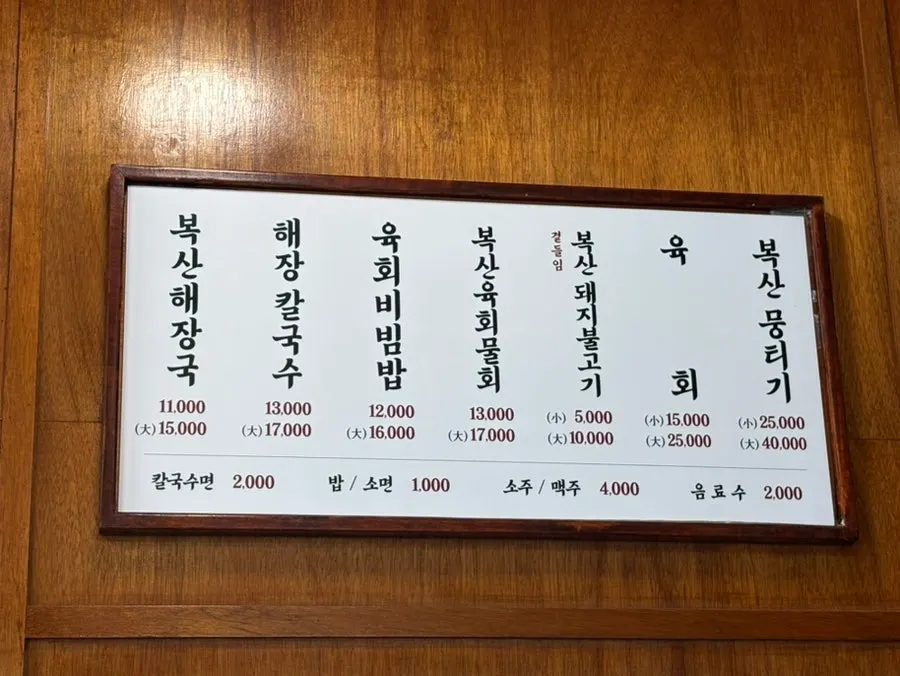 복산해장국
11,000
(大)15,000
해장칼국수
13,000
(大)17,000
육회비빔밥
12,000
(大)16,000
복산육회물회
13,000
(大)17,000
곁들임
복산 돼지불고기
(小) 5,000
(大)10,000
육회
(小)15,000
(大)25,000
복산 뭉티기
(小)25,000
(大)40,000
칼국수면 2,000
밥 / 소면 1,000
소주 / 맥주 4,000
음료수 2,000